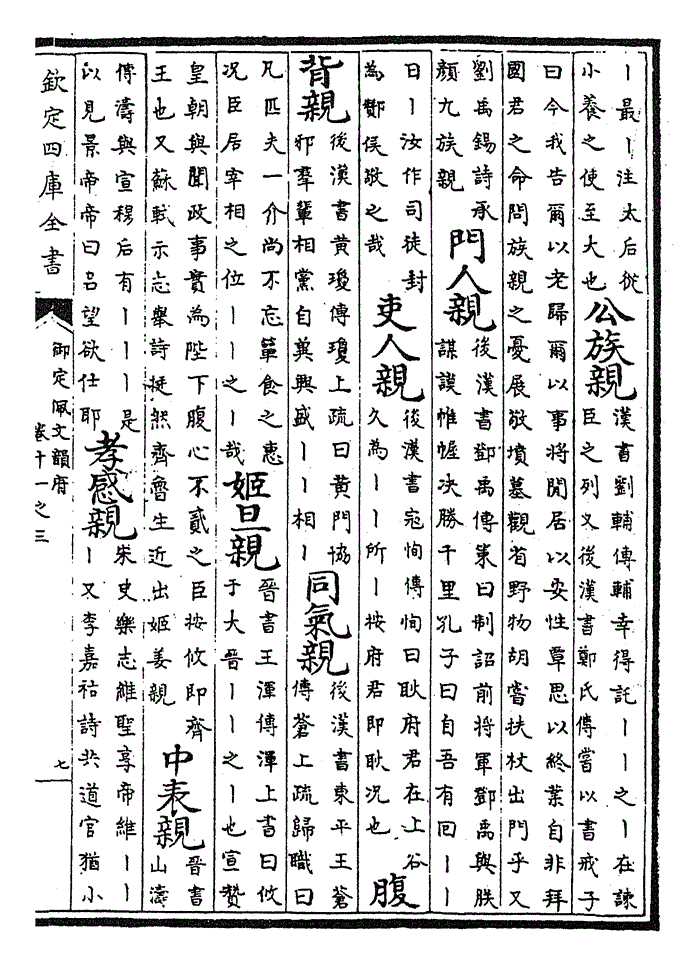 丨最丨注太后從
小養之使至大也
公族親
漢書劉輔傳輔幸得託丨丨之丨在諫
臣之列又後漢書鄭氏傳嘗以書戒子
曰今我告爾以老歸爾以事將閒居以安性覃思以終業自非拜
國君之命問族親之憂展敬墳墓觀省野物胡嘗扶杖出門乎又
劉禹錫詩承
顔九族親
門人親
後漢書鄧禹傳策曰制詔前將軍鄧禹與朕
謀謨帷幄决勝千里孔子曰自吾有回丨丨
日丨汝作司徒封
為酇侯敬之哉
吏人親
後漢書寇恂傳恂曰耿府君在上谷
久為丨丨所丨按府君即耿况也
腹
背親
後漢書黄瓊傳瓊上疏曰黄門協
邪羣輩相黨自冀興盛丨丨相丨
同氣親
後漢書東平王蒼
傳蒼上疏歸職曰
凡匹夫一介尚不忘簞食之惠
况臣居宰相之位丨丨之丨哉
姬旦親
晉書王渾傳渾上書曰攸
于大晉丨丨之丨也宣贊
皇朝與聞政事實為陛下腹心不貳之臣按攸即齊
王也又蘇軾示忘舉詩挺然齊魯生近出姬姜親
中表親
晉書
山濤
傳濤與宣穆后有丨丨丨是
以見景帝帝曰呂望欲仕耶
孝感親
宋史樂志維聖享帝維丨丨
丨又李嘉祐詩共道官猶小
欽定四庫全書
御定佩文韻府
卷十一之三
七